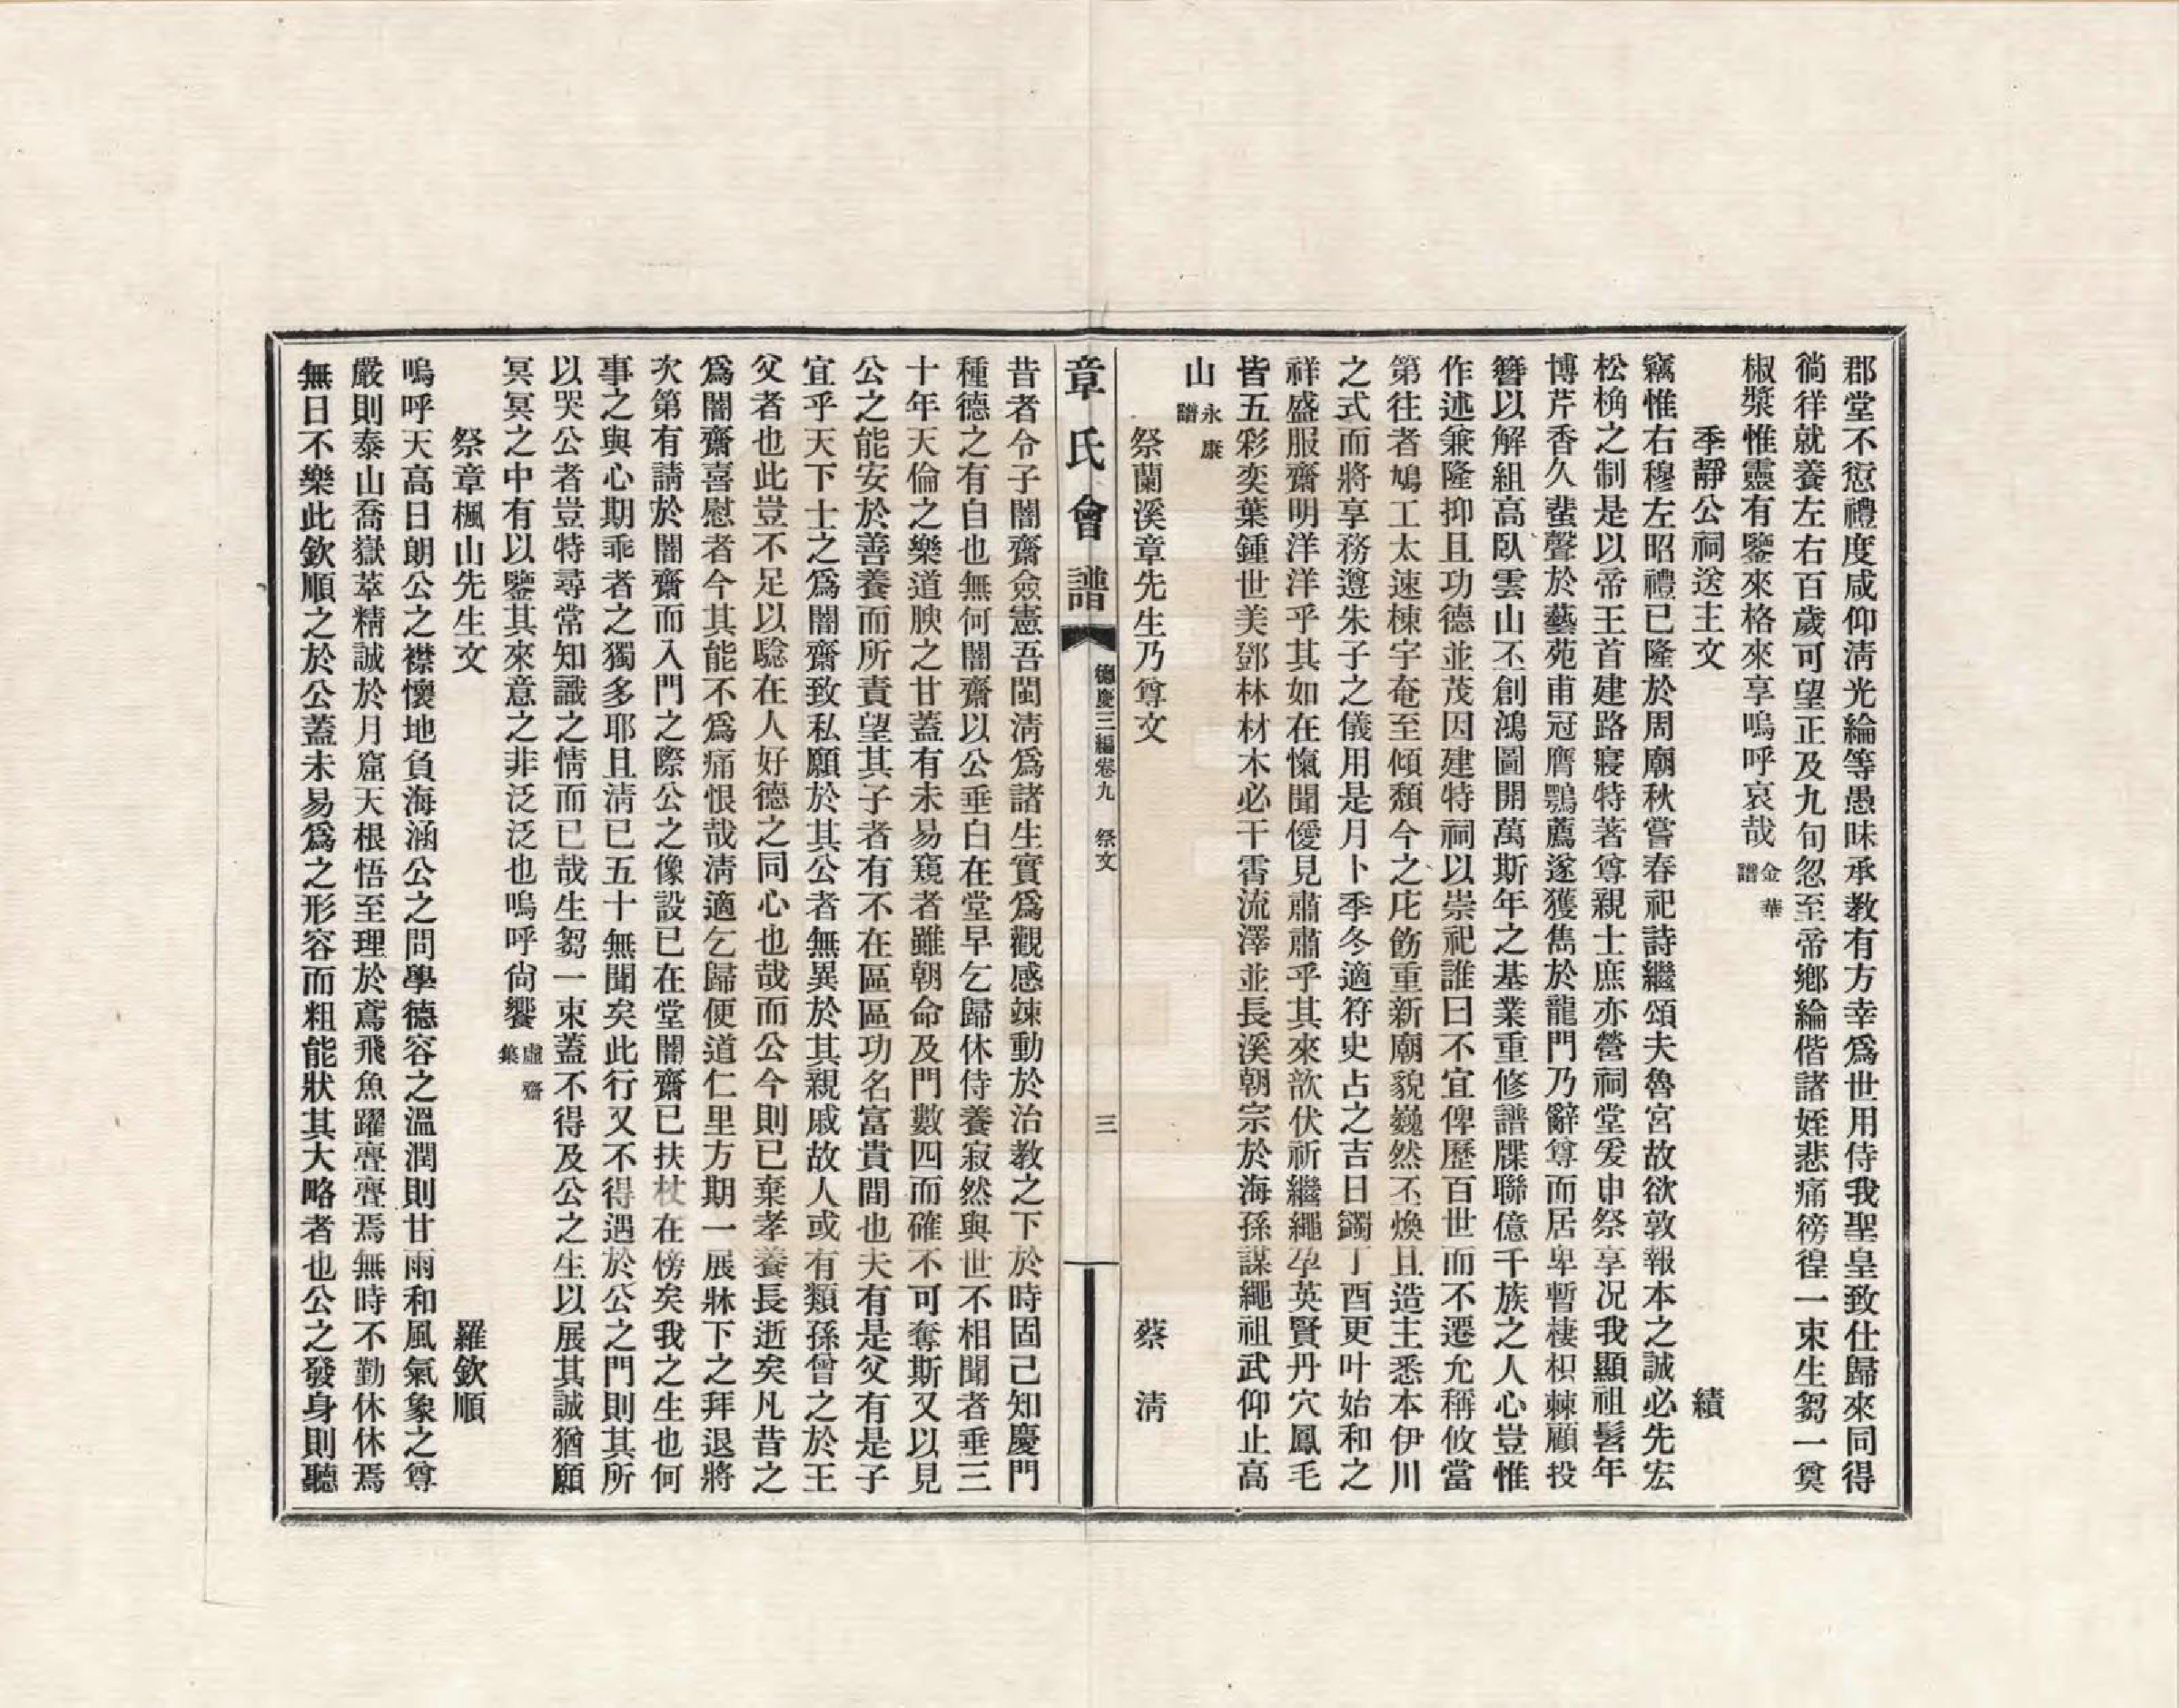 郡堂不愆禮度咸仰淸光綸等愚昧承教有方幸爲世用侍我聖皇致仕歸來同得
徜徉就養左右百歲可望正及九旬忽至帝鄉綸偕諸姪悲痛徬徨一束生芻一奠
椒漿惟靈有鑒來格來享嗚呼哀哉 金華譜
季靜公祠送主文 績
竊惟右穆左昭禮已隆於周廟秋嘗春祀詩繼頌夫魯宮故欲敦報本之誠必先宏
松桷之制是以帝王首建路寢特著尊親士庶亦營祠堂爰申祭享况我顯祖髫年
博芹香久蜚聲於藝苑甫冠膺鶚薦遂獲雋於龍門乃辭尊而居卑暫棲枳棘顧投
簪以解組高臥雲山丕創鴻圖開萬斯年之基業重修譜牒聯億千族之人心豈惟
作述兼隆抑且功德並茂因建特祠以崇祀誰曰不宜俾歷百世而不遷允稱攸當
第往者鳩工太速棟宇奄至傾頹今之庀飭重新廟貌巍然丕煥且造主悉本伊川
之式而將享務遵朱子之儀用是月卜季冬適符史占之吉日蠲丁酉更叶始和之
祥盛服齋明洋洋乎其如在愾聞僾見肅肅乎其來歆伏祈繼繩孕英賢丹穴鳳毛
皆五彩奕葉鍾世美鄧林材木必干霄流澤並長溪朝宗於海孫謀繩祖武仰止高
山 永康譜
祭蘭溪章先生乃尊文 蔡淸
章氏會譜 德慶三編卷九 祭文 三
昔者令子闇齋僉憲吾閩淸爲諸生實爲觀感竦動於治教之下於時固己知慶門
種德之有自也無何闇齋以公垂白在堂早乞歸休侍養寂然與世不相聞者垂三
十年天倫之樂道腴之甘蓋有未易窺者雖朝命及門數四而確不可奪斯又以見
公之能安於善養而所責望其子者有不在區區功名富貴間也夫有是父有是子
宜乎天下士之爲闇齋致私願於其公者無異於其親戚故人或有類孫曾之於王
父者也此豈不足以驗在人好德之同心也哉而公今則已棄孝養長逝矣凡昔之
爲闇齋喜慰者今其能不爲痛恨哉淸適乞歸便道仁里方期一展牀下之拜退將
次第有請於闇齋而入門之際公之像設已在堂闇齋已扶杖在傍矣我之生也何
事之與心期乖者之獨多耶且淸已五十無聞矣此行又不得遇於公之門則其所
以哭公者豈特尋常知識之情而已哉生芻一束蓋不得及公之生以展其誠猶願
冥冥之中有以鑒其來意之非泛泛也嗚呼尙饗 虛齋集
祭章楓山先生文 羅欽順
嗚呼天高日朗公之襟懷地負海涵公之問學德容之溫潤則甘雨和風氣象之尊
嚴則泰山喬嶽萃精誠於月窟天根悟至理於鳶飛魚躍亹亹焉無時不勤休休焉
無日不樂此欽順之於公蓋未易爲之形容而粗能狀其大略者也公之發身則聽